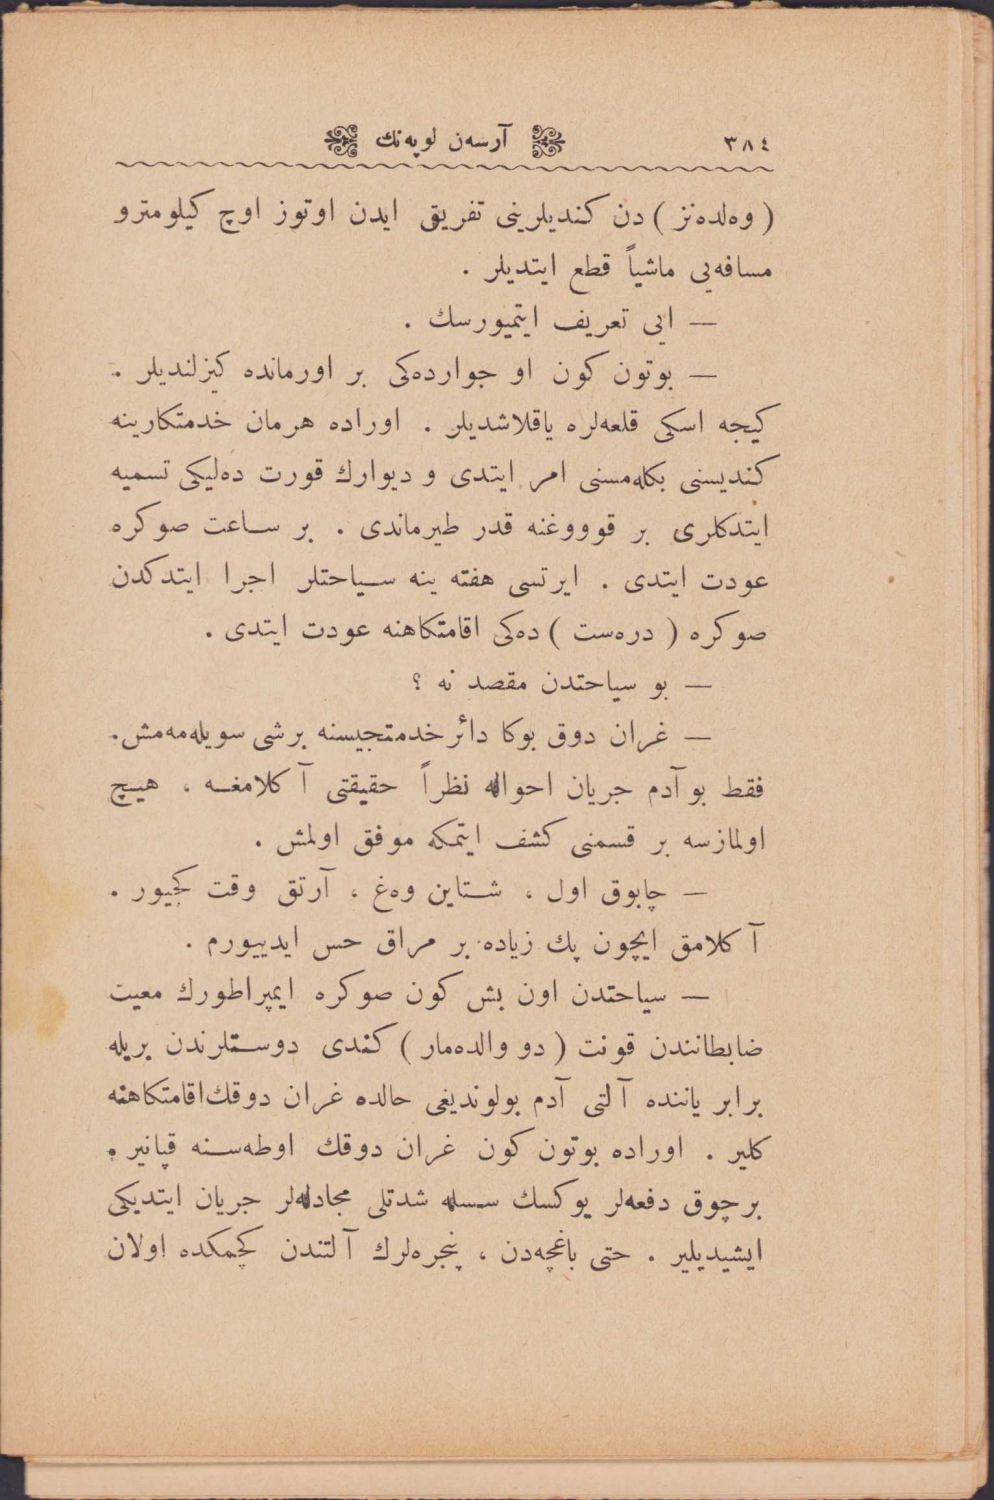 ٣٨٤ آرسەن لوپەنك
( وەلدەنز ) دن كنديلرينى تفريق ايدن اوتوز اوچ كيلومترو
مسافەيى ماشياً قطع ايتديلر .
— ايى تعريف ايتميورسك .
— بوتون كون او جواردەكى بر اورماندە كيزلنديلر .
كيجە اسكى قلعەلرە ياقلاشديلر . اورادە هرمان خدمتكارينە
كنديسنى بكلەمسنى امر ايتدى و ديوارك قورت دەليكى تسميە
ايتدكلرى بر قوووغنە قدر طيرماندى . بر ساعت صوكرە
عودت ايتدى . ايرتسى هفتە ينە سياحتلر اجرا ايتدكدن
صوكرە ( درەست ) دەكى اقامتكاهنە عودت ايتدى .
— بو سياحتدن مقصد نە ؟
— غران دوق بوكا دائر خدمتجيسنە برشى سويلەمەمش.
فقط بو آدم جريان احوالە نظراً حقيقتى آكلامغە ، هيچ
اولمازسە بر قسمنى كشف ايتمكە موفق اولمش .
— چابوق اول ، شتاين وەغ ، آرتق وقت كچيور .
آكلامق ايچون پك زيادە بر مراق حس ايدييورم .
— سياحتدن اون بش كون صوكرە ايمپراطورك معيت
ضابطانندن قونت ( دو والدەمار ) كندى دوستلرندن بريلە
برابر ياننده آلتى آدم بولونديغى حالدە غران دوقك اقامتكاهنە
كلير . اورادە بوتون كون غران دوقك اوطەسنە قپانير .
برچوق دفعەلر يوكسك سسلە شدتلى مجادلەلر جريان ايتديكى
ايشيديلير . حتى باغچەدن ، پنجرەلرك آلتندن كچمكدە اولان